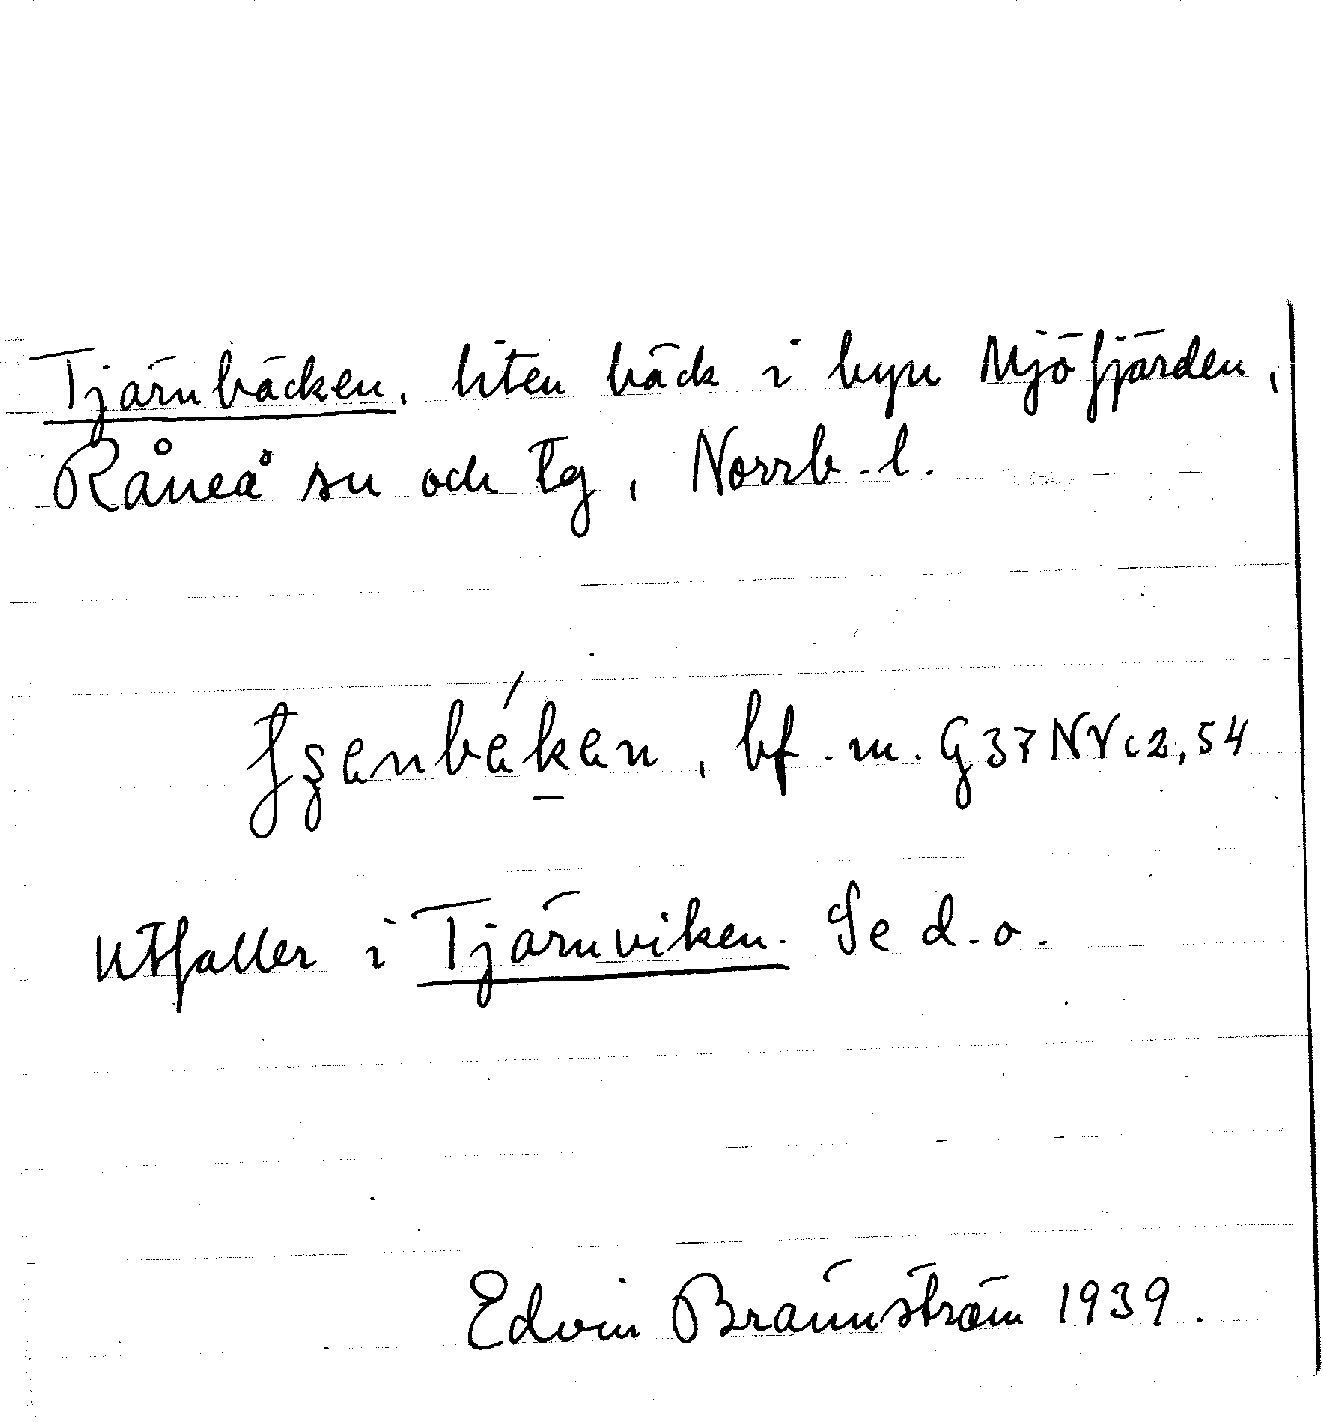 Tjärnbäcken, liten bäck i byn Mjöfjärden,
Råneå sn och tg, Norrb. l.
bf. m. G37NV c2,54
Utfaller i Tjärnviken. Se d. o.
Edvin Brännström 1939.